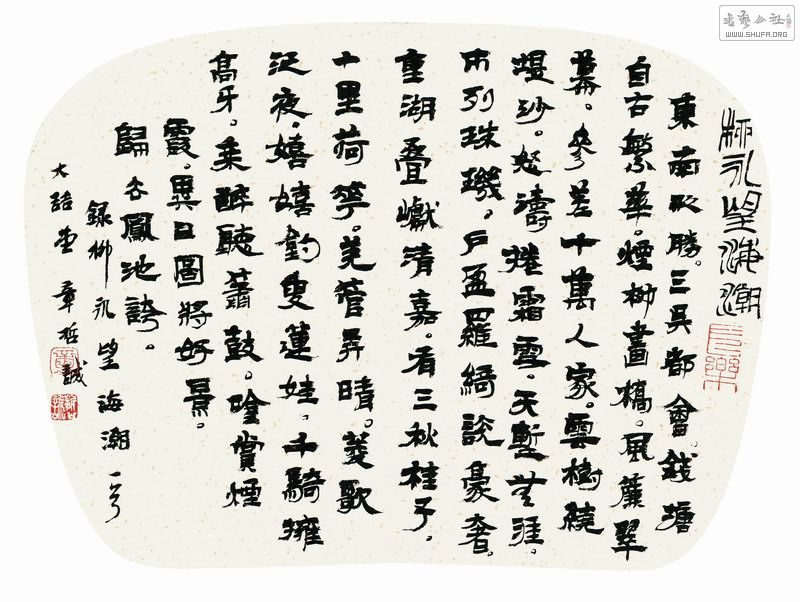 柳永望海潮
東南形勝。三吳都會。錢塘
自古繁華。煙柳畫橋。風簾翠
幕。參差千萬人家。雲樹繞
堤沙。怒濤捲霜雪。天塹無涯。
市列珠璣。戶盈羅綺競豪奢。
重湖疊巘清嘉。有三秋桂子。
十里荷花。羌管弄晴。菱歌
泛夜。嬉嬉釣叟蓮娃。千騎擁
高牙。乘醉聽蕭鼓。吟賞煙
霞。異日圖將好景。
歸去鳳池誇。
錄柳永望海潮一首
大 堂 章哲誠
長樂
書藝公社
WWW.SHUFA.ORG